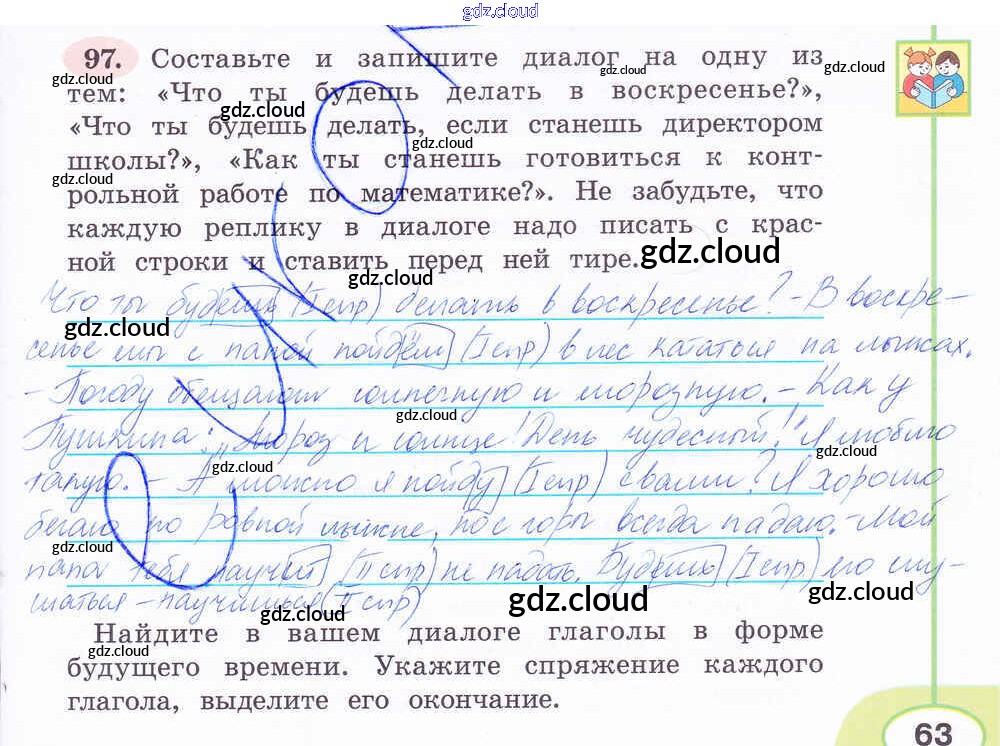 gdz.cloud
97. Составьте и запишите диалог на одну из
тем: «Что ты будешь делать в воскресенье?»,
«Что ты будешь делать, если станешь директором
школы?», «Как ты станешь готовиться к конт-
рольной работе по математике?». Не забудьте, что
каждую реплику в диалоге надо писать с крас-
ной строки и ставить перед ней тире.
Что ты будешь (I спр) делать в воскресенье? - В воскре-
сенье мы с папой пойдём (I спр) в лес кататься на лыжах.
- Погоду обещали солнечную и морозную. - Как у
Пушкина: „Мороз и солнце! День чудесный!" Я люблю
такую. - А можно я пойду (I спр) с вами? Я хорошо
бегаю по ровной лыжне, но с горы всегда падаю. - Мой
папа тебя научит (II спр) не падать. Будешь (I спр) его слу-
шаться - научишься (II спр)
Найдите в вашем диалоге глаголы в форме
будущего времени. Укажите спряжение каждого
глагола, выделите его окончание.
63